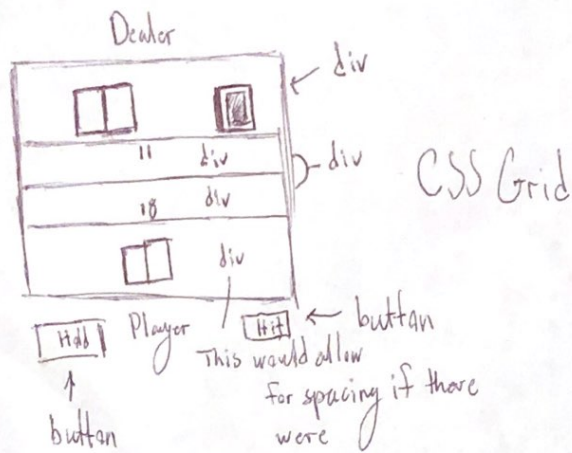 Dealer
div
11 div
div
CSS Grid
18 div
div
Hold
Player
Hit
button
This would allow
for spacing if there
were
button